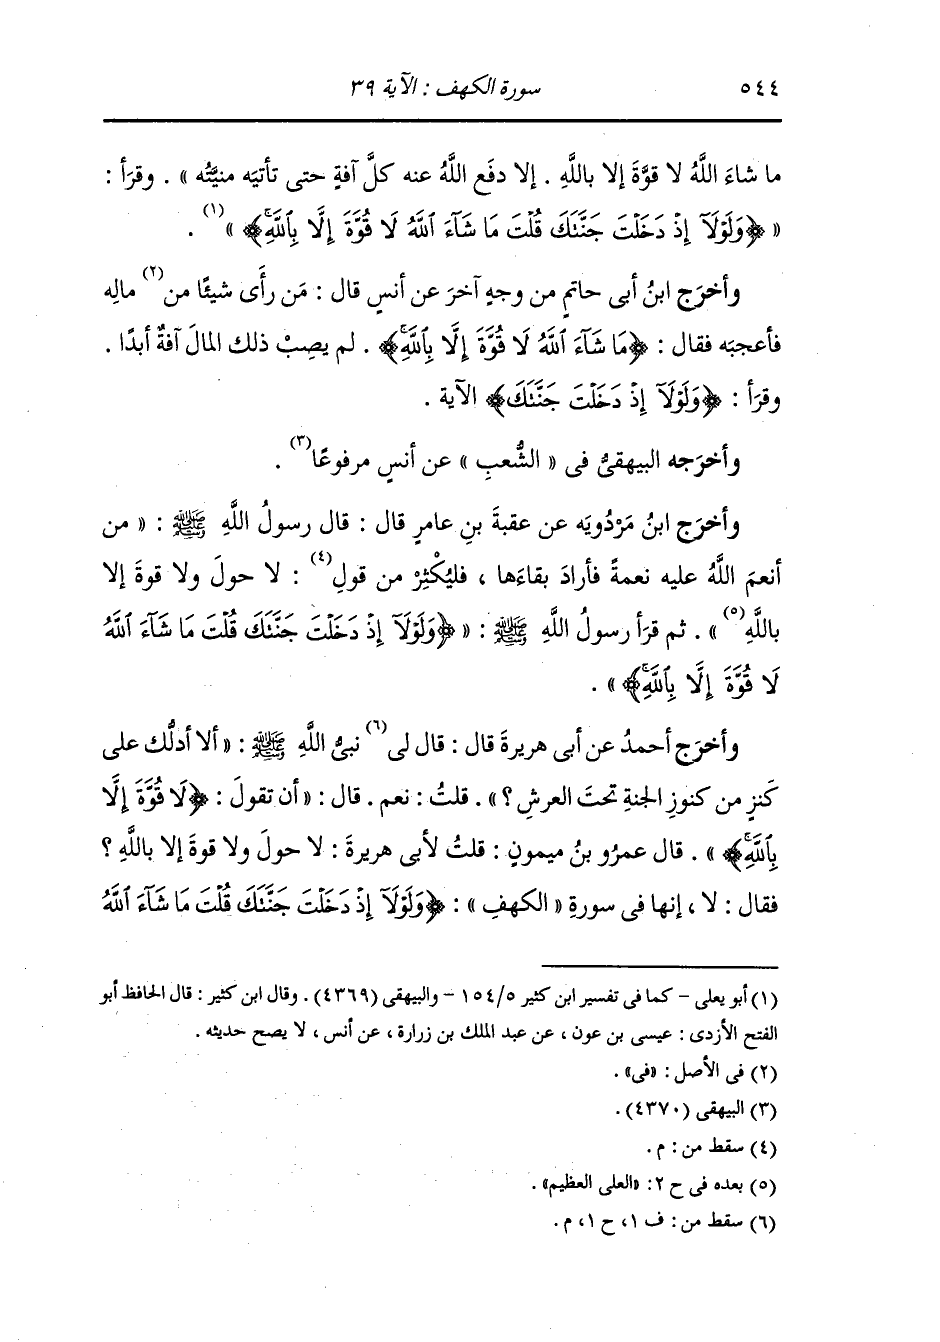 ٥٤٤ سورة الكهف : الآية ٣٩
ما شاءَ اللَّهُ لا قوَّةَ إلا باللَّهِ . إلا دفَع اللَّهُ عنه كلَّ آفةٍ حتى تأتيَه منيَّتُه » . وقرَأ :
« ﴿وَلَوْلَآ إِذْ دَخَلْتَ جَنَّتَكَ قُلْتَ مَا شَآءَ ٱللَّهُ لَا قُوَّةَ إِلَّا بِٱللَّهِۚ﴾ »(١) .
وأخرَج ابنُ أبى حاتمٍ من وجهٍ آخرَ عن أنسٍ قال : مَن رأَى شيئًا من(٢) مالِه
فأعجبَه فقال : ﴿مَا شَآءَ ٱللَّهُ لَا قُوَّةَ إِلَّا بِٱللَّهِۚ﴾ . لم يصِبْ ذلك المالَ آفةٌ أبدًا .
وقرَأ : ﴿وَلَوْلَآ إِذْ دَخَلْتَ جَنَّتَكَ﴾ الآية .
وأخرَجه البيهقىُّ فى « الشُّعبِ » عن أنسٍ مرفوعًا(٣) .
وأخرَج ابنُ مَرْدُويَه عن عقبةَ بنِ عامرٍ قال : قال رسولُ اللَّهِ ﷺ : « من
أنعمَ اللَّهُ عليه نعمةً فأرادَ بقاءَها ، فليُكْثِرْ من قولِ(٤) : لا حولَ ولا قوةَ إلا
باللَّهِ(٥) » . ثم قرَأ رسولُ اللَّهِ ﷺ : « ﴿وَلَوْلَآ إِذْ دَخَلْتَ جَنَّتَكَ قُلْتَ مَا شَآءَ ٱللَّهُ
لَا قُوَّةَ إِلَّا بِٱللَّهِۚ﴾ » .
وأخرَج أحمدُ عن أبى هريرةَ قال : قال لى(٦) نبىُّ اللَّهِ ﷺ : « ألا أدلُّك على
كَنزٍ من كنوزِ الجنةِ تحتَ العرشِ ؟ » . قلتُ : نعم . قال : « أن تقولَ : ﴿لَا قُوَّةَ إِلَّا
بِٱللَّهِۚ﴾ » . قال عمرُو بنُ ميمونٍ : قلتُ لأبى هريرةَ : لا حولَ ولا قوةَ إلا باللَّهِ ؟
فقال : لا ، إنها فى سورةِ « الكهفِ » : ﴿وَلَوْلَآ إِذْ دَخَلْتَ جَنَّتَكَ قُلْتَ مَا شَآءَ ٱللَّهُ
(١) أبو يعلى - كما فى تفسير ابن كثير ١٥٤/٥ - والبيهقى (٤٣٦٩) . وقال ابن كثير : قال الحافظ أبو
الفتح الأزدى : عيسى بن عون ، عن عبد الملك بن زرارة ، عن أنس ، لا يصح حديثه .
(٢) فى الأصل : «فى» .
(٣) البيهقى (٤٣٧٠) .
(٤) سقط من : م .
(٥) بعده فى ح ٢ : «العلى العظيم» .
(٦) سقط من : ف ١، ح ١، م .